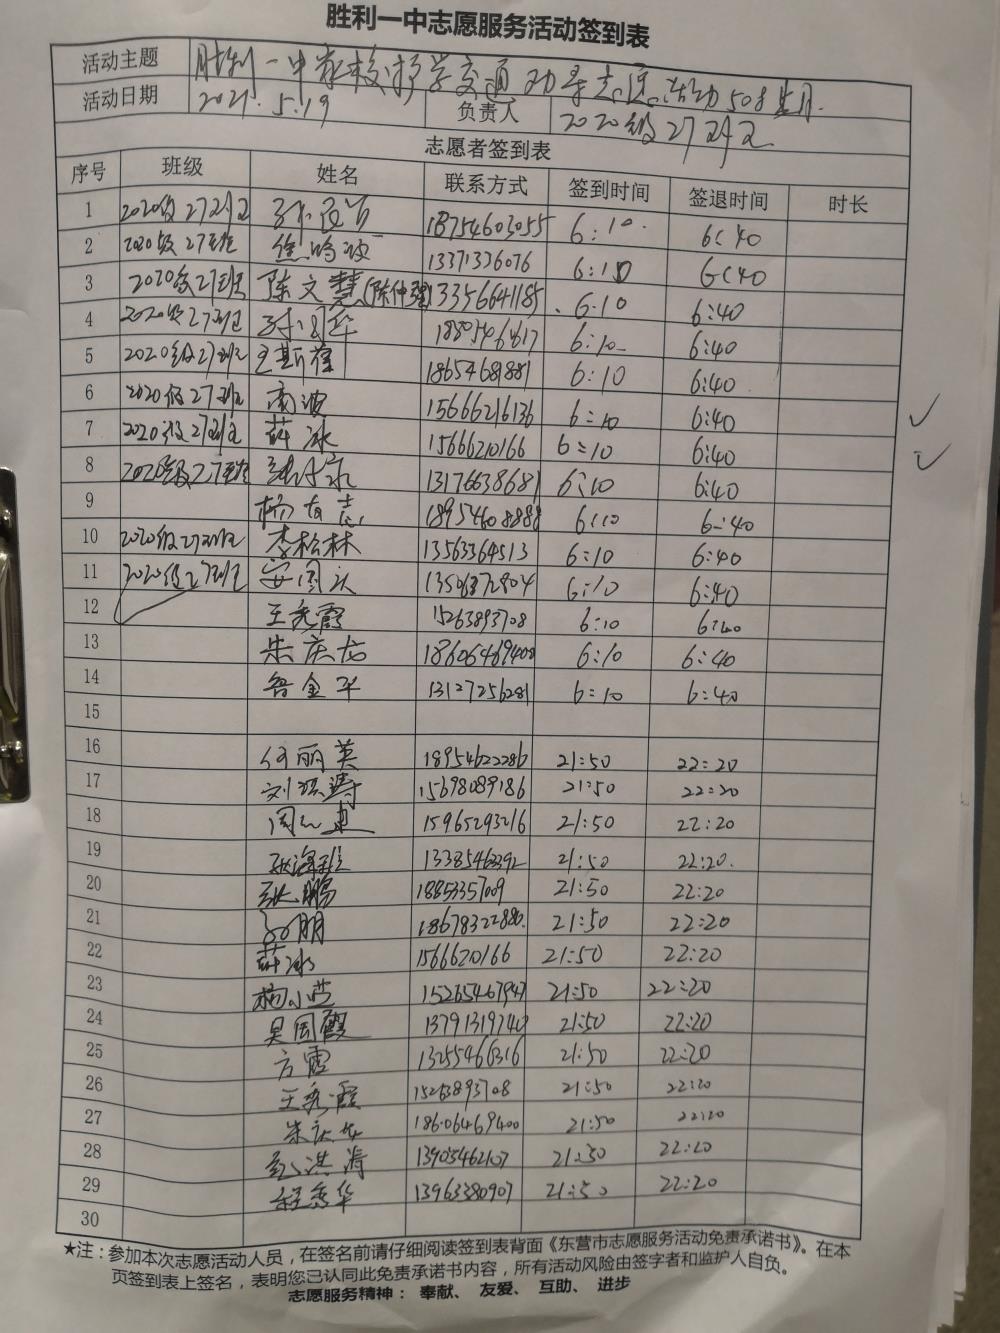 胜利一中志愿服务活动签到表
活动主题 胜利一中家校护学交通劝导志愿活动508
活动日期 2021.5.19 负责人 2020级27班
志愿者签到表
序号 班级 姓名 联系方式 签到时间 签退时间 时长
1 2020级27班 18754603055 6:10 6:40
2 2020级27班 13371336076 6:10 6:40
3 2020级27班 陈文慧(陈仲强) 13356641185 6:10 6:40
4 2020级27班 6:10 6:40
5 2020级27班 王斯葆 18654681881 6:10 6:40
6 2020级27班 高波 15666216136 6:10 6:40
7 2020级27班 薛冰 15666210166 6:10 6:40
8 2020级27班 13176638681 6:10 6:40
9 杨有志 18954608888 6:10 6:40
10 2020级27班 李松林 13563364513 6:10 6:40
11 2020级27班 安国庆 13506372804 6:10 6:40
12 王秀霞 15263893708 6:10 6:40
13 朱庆龙 18606469400 6:10 6:40
14 鲁金华 13127256281 6:10 6:40
15
16 何丽英 18954622286 21:50 22:20
17 15698089186 21:50 22:20
18 15965293216 21:50 22:20
19 21:50 22:20
20 张鹏 18853357009 21:50 22:20
21 18678322880 21:50 22:20
22 薛冰 1566620166 21:50 22:20
23 15265467947 21:50 22:20
24 吴国霞 13791319740 21:50 22:20
25 方霞 13255466316 21:50 22:20
26 王秀霞 15263893708 21:50 22:20
27 朱庆龙 18606469400 21:50 22:20
28 13905462107 21:50 22:20
29 程秀华 13963380907 21:50 22:20
30
★注：参加本次志愿活动人员，在签名前请仔细阅读签到表背面《东营市志愿服务活动免责承诺书》。在本
页签到表上签名，表明您已认同此免责承诺书内容，所有活动风险由签字者和监护人自负。
志愿服务精神： 奉献、 友爱、 互助、 进步